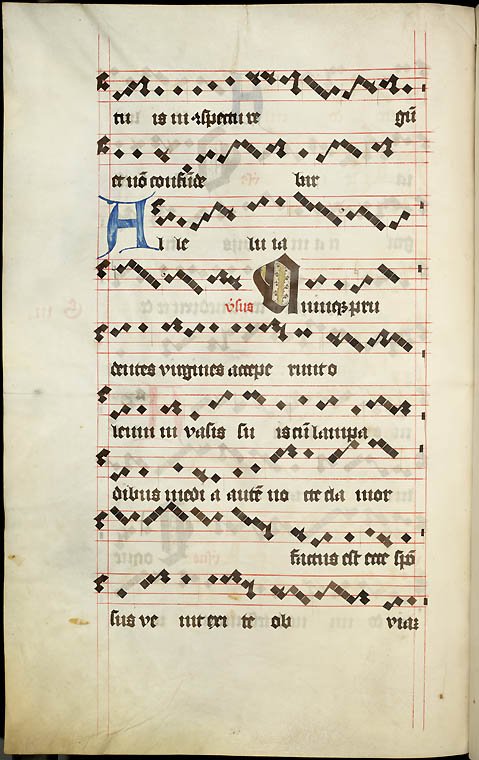 tu is in cōspectu re gū
et nō confūde bar
Al le lu ia
v̄sus Quinq3 pru
dentes virgines accepe runt o
leum in vasis su is cū lampa
dibus medi a autē no cte cla mor
factus est ecce spō
sus ve nit exi te ob viaz